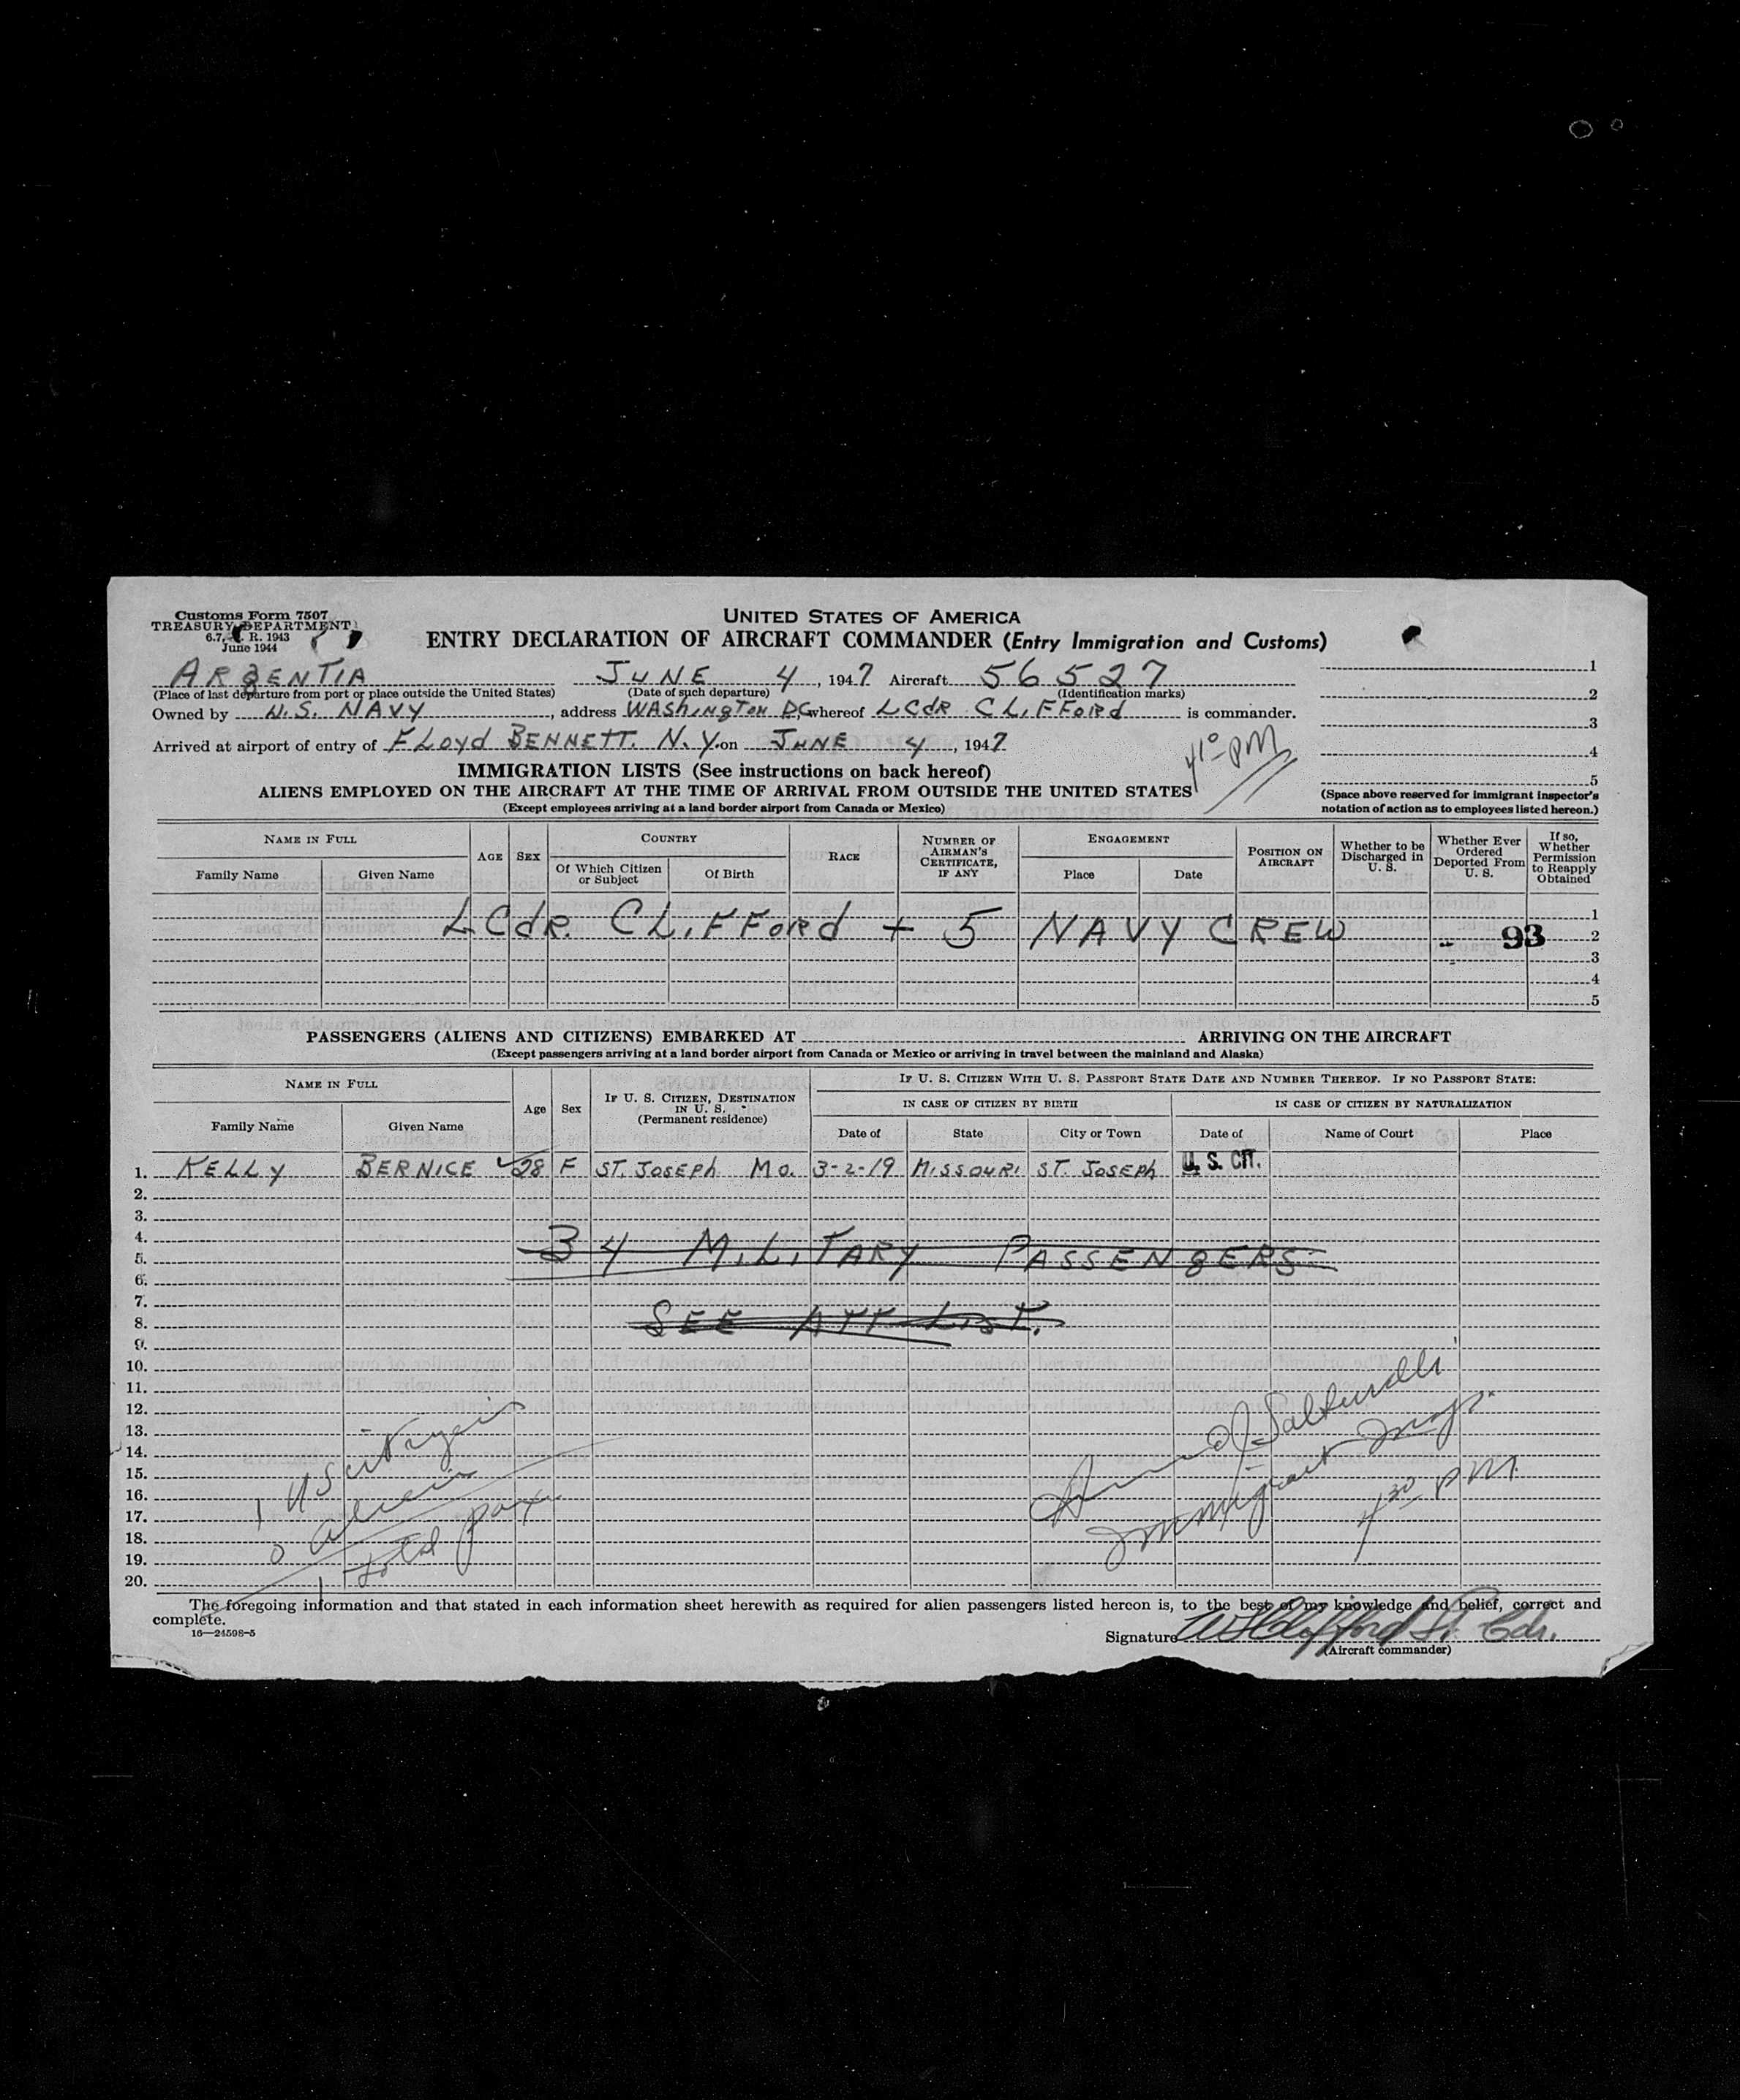 Customs Form 7507
TREASURY DEPARTMENT
6.7, C. R. 1943
June 1944
UNITED STATES OF AMERICA
ENTRY DECLARATION OF AIRCRAFT COMMANDER (Entry Immigration and Customs)
ARGENTIA JUNE 4, 1947 Aircraft 56527
(Place of last departure from port or place outside the United States) (Date of such departure) (Identification marks)
Owned by U.S. NAVY, address WASHINGTON D.C. whereof LCdR CLIFFORD is commander.
Arrived at airport of entry of FLOYD BENNETT. N.Y. on JUNE 4, 1947
4 10 PM
1
2
3
4
5
(Space above reserved for immigrant inspector's notation of action as to employees listed hereon.)
IMMIGRATION LISTS (See instructions on back hereof)
ALIENS EMPLOYED ON THE AIRCRAFT AT THE TIME OF ARRIVAL FROM OUTSIDE THE UNITED STATES
(Except employees arriving at a land border airport from Canada or Mexico)
NAME IN FULL
Family Name Given Name
AGE SEX
COUNTRY
Of Which Citizen or Subject Of Birth
RACE
NUMBER OF AIRMAN'S CERTIFICATE, IF ANY
ENGAGEMENT
Place Date
POSITION ON AIRCRAFT
Whether to be Discharged in U. S.
Whether Ever Ordered Deported From U. S.
If so, Whether Permission to Reapply Obtained
1
LCdR. CLIFFORD + 5 NAVY CREW 93 2
3
4
5
PASSENGERS (ALIENS AND CITIZENS) EMBARKED AT ARRIVING ON THE AIRCRAFT
(Except passengers arriving at a land border airport from Canada or Mexico or arriving in travel between the mainland and Alaska)
NAME IN FULL
Family Name Given Name
Age Sex
IF U. S. CITIZEN, DESTINATION IN U. S. (Permanent residence)
IF U. S. CITIZEN WITH U. S. PASSPORT STATE DATE AND NUMBER THEREOF. IF NO PASSPORT STATE:
IN CASE OF CITIZEN BY BIRTH IN CASE OF CITIZEN BY NATURALIZATION
Date of State City or Town Date of Name of Court Place
1. KELLY BERNICE 28 F ST. JOSEPH MO. 3-2-19 MISSOURI ST. JOSEPH U. S. CIT.
2.
3.
4.
34 MILITARY PASSENGERS
5.
6.
7.
8. SEE ATT LIST.
9.
10.
11.
12.
13.
14.
15.
16.
17.
18.
19.
20.
1 US citizens
0 Aliens
1 total pax
Immigrant Insp.
4 30 PM.
The foregoing information and that stated in each information sheet herewith as required for alien passengers listed hereon is, to the best of my knowledge and belief, correct and complete.
16—24598-5
Signature W Clifford Lt. Cdr.
(Aircraft commander)